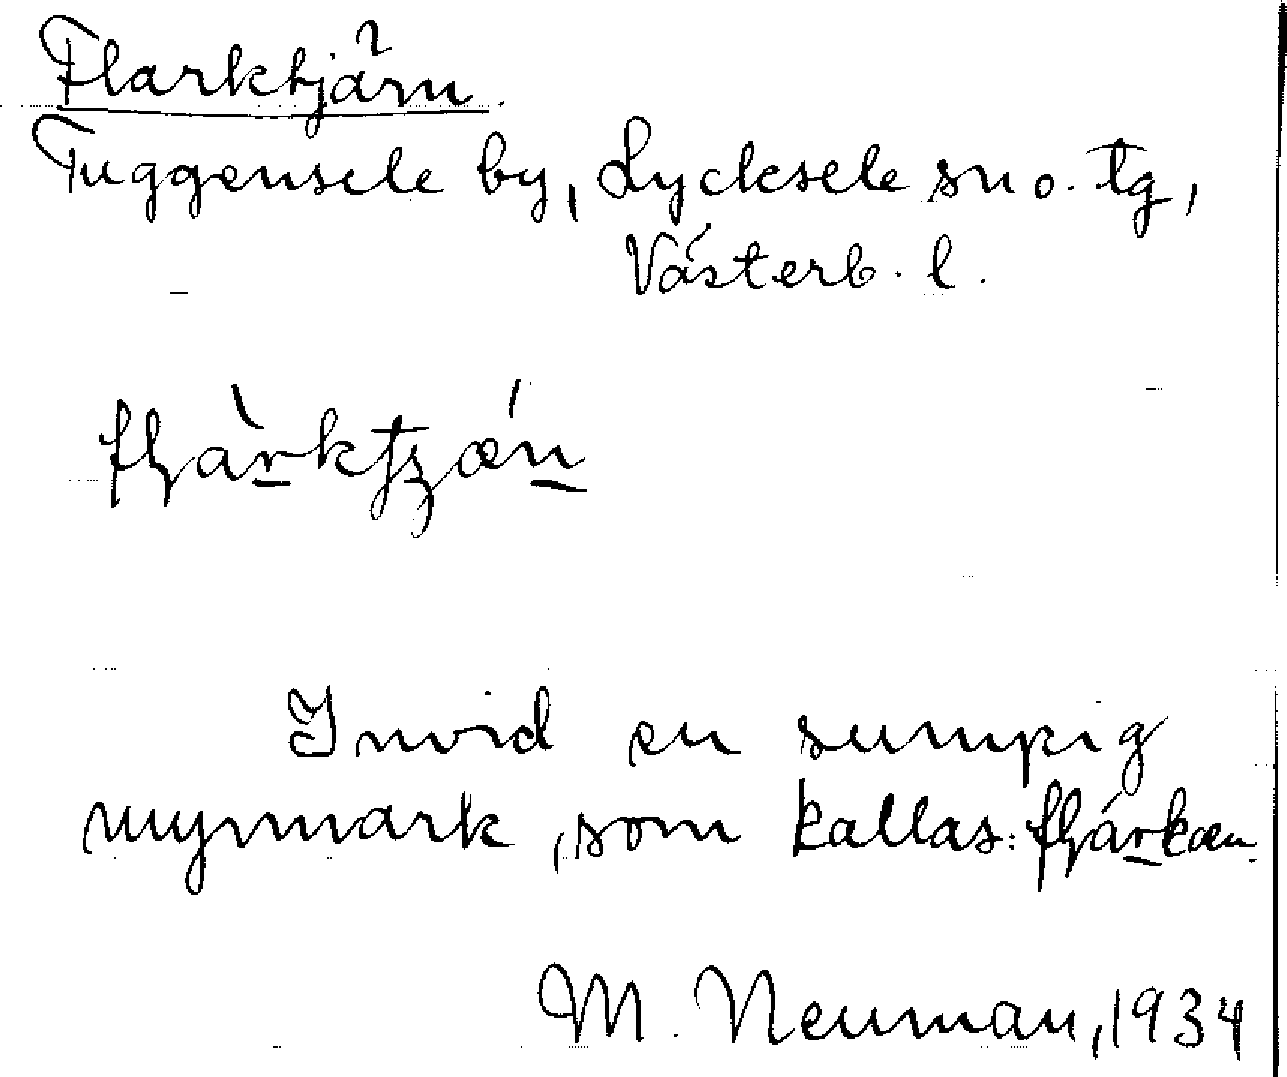 Flarktjärn
Tuggensele by, Lycksele sn o. tg,
Västerb. l.
Invid en sumpig
myrmark, som kallas:
M. Neuman, 1934